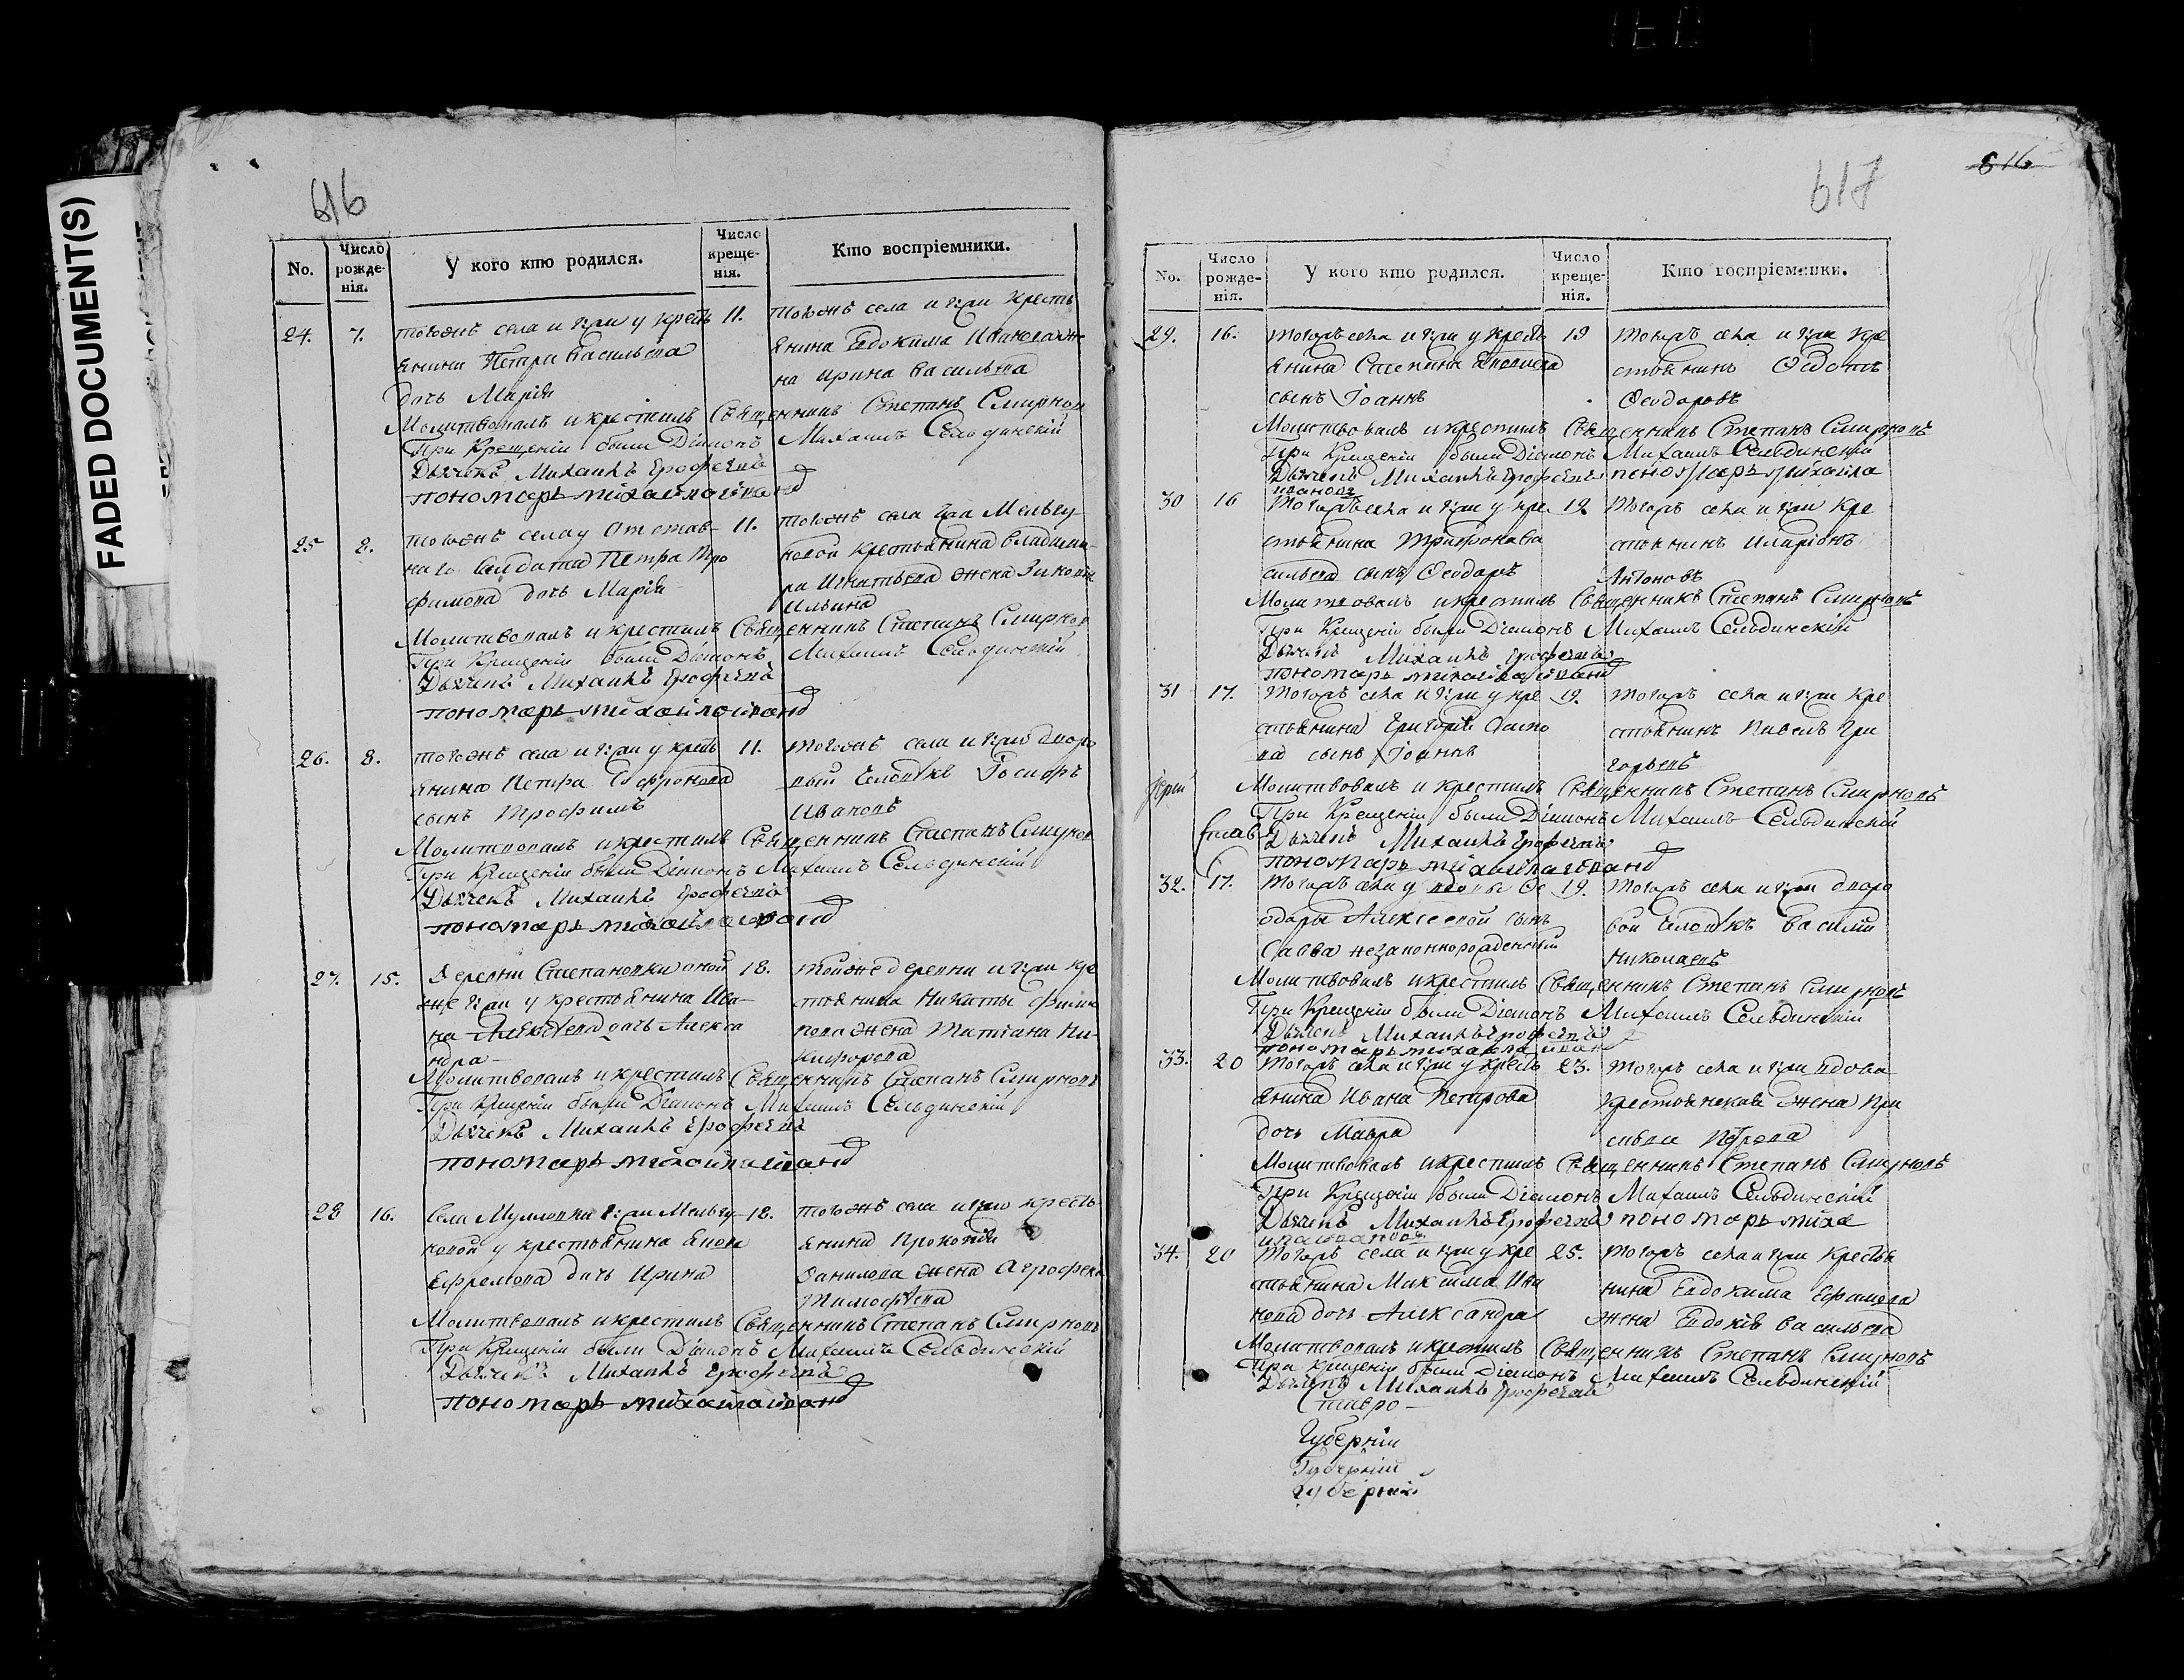 FADED DOCUMENT(S)
616
No.
Число рожде-нія.
У кого кто родился.
Число креще-нія.
Кто воспріемники.
24. 7.
тогожъ села и Гжи у кресть
янина Петра Васильева
дочь Марія
11.
тогожъ села и Гжи кресть
янина Евдокима Иванова же
на Ирина Васильева
Молитвовалъ и крестилъ Священникъ Степанъ Смирнов
При Крещеніи были Діаконъ Михаилъ Сельдинскій
Дьячекъ Михаилъ Ерофеевъ
пономарь михайла иванов
25 8.
тогожъ села у отстав-
наго Солдата Петра Тро
фимова дочь Марія
11.
тогожъ села Гжи Мельгу
новой крестьянина Владими-
ра Игнатьева жена
Ильина
Молитвовалъ и крестилъ Священникъ Степанъ Смирнов
При Крещеніи были Діаконъ Михаилъ Сельдинскій
Дьячекъ Михаилъ Ерофеевъ
пономарь михайло иванов
26. 8.
тогожъ села и Гжи у кресть
янина Петра Софронова
сынъ Трофимъ
11.
тогожъ села и Гжи дворо
вый человекъ
Ивановъ
Молитвовалъ и крестилъ Священникъ Степанъ Смирнов
При Крещеніи были Діаконъ Михаилъ Сельдинскій
Дьячекъ Михаилъ Ерофеевъ
пономарь михайла иванов
27. 15.
Деревни Степановки оной
же Гжи у крестьянина Ива-
на Алексеева дочь Алекса
ндра
18.
тойже деревни и Гжи кре
стьянина Никиты Филип
пова жена Татиана Ни-
кифорова
Молитвовалъ и крестилъ Священникъ Степанъ Смирновъ
При Крещеніи были Діаконъ Михаилъ Сельдинскій
Дьячекъ Михаилъ Ерофеевъ
пономарь михайла иванов
28 16.
Села Мулловки Гжи Мельгу
новой у крестьянина
Ефремова дочь Ирина
18.
тогожъ села и Гжи кресть
янина Прокопія
Данилова жена Агрофена
Тимофеева
Молитвовалъ и крестилъ Священникъ Степанъ Смирновъ
При Крещеніи были Діаконъ Михаилъ Сельдинскій
Дьячекъ Михаилъ Ерофеевъ
пономарь михайла иванов
617
616
No.
Число рожде-нія.
У кого кто родился.
Число креще-нія.
Кто воспріемники.
29. 16.
Тогожъ села и Гжи у кресть
янина Степана
сынъ Іоаннъ
19
Тогожъ села и Гжи кре
стьянинъ Федотъ
Феодоровъ
Молитвовалъ и крестилъ Священникъ Степанъ Смирновъ
При Крещеніи были Діаконъ Михаилъ Сельдинскій
Дьячекъ Михаилъ Ерофеевъ пономарь михайла
иванов
30 16
Тогожъ села и Гжи у кре
стьянина Трифона Ва
сильева сынъ Феодоръ
19.
Тогожъ села и Гжи кре
стьянинъ Иларіонъ
Антоновъ
Молитвовалъ и крестилъ Священникъ Степанъ Смирновъ
При Крещеніи были Діаконъ Михаилъ Сельдинскій
Дьячекъ Михаилъ Ерофеевъ
пономарь михайла иванов
31 17.
Тогожъ села и Гжи у кре
стьянина Григорія
ва сынъ Іоаннъ
19.
Тогожъ села и Гжи кре
стьянинъ Павелъ Гри
горьевъ
Молитвовалъ и крестилъ Священникъ Степанъ Смирновъ
При Крещеніи были Діаконъ Михаилъ Сельдинскій
Дьячекъ Михаилъ Ерофеевъ
пономарь михайла иванов
32. 17.
Тогожъ села у вдовы Фе
одоры Алексеевой сынъ
Савва незаконнорожденный
19.
Тогожъ села и Гжи дворо
вой человекъ Василій
Николаевъ
Молитвовалъ и крестилъ Священникъ Степанъ Смирновъ
При Крещеніи были Діаконъ Михаилъ Сельдинскій
Дьячекъ Михаилъ Ерофеевъ
пономарь михайла иванов
33. 20
Тогожъ села и Гжи у кресть
янина Ивана Петрова
дочь Мавра
23.
Тогожъ села и Гжи вдова
крестьянская жена Пра
сковья Петрова
Молитвовалъ и крестилъ Священникъ Степанъ Смирновъ
При Крещеніи были Діаконъ Михаилъ Сельдинскій
Дьячекъ Михаилъ Ерофеевъ пономарь миха
34. 20
Тогожъ села и Гжи у кре
стьянина Максима Ива
нова дочь Александра
25.
Тогожъ села и Гжи крестья
нина Евдокима Ефимова
жена Евдокія Васильева
Молитвовалъ и крестилъ Священникъ Степанъ Смирновъ
При Крещеніи были Діаконъ Михаилъ Сельдинскій
Дьячекъ Михаилъ Ерофеевъ
Ставро
Губерніи
Губерніи
губерніи